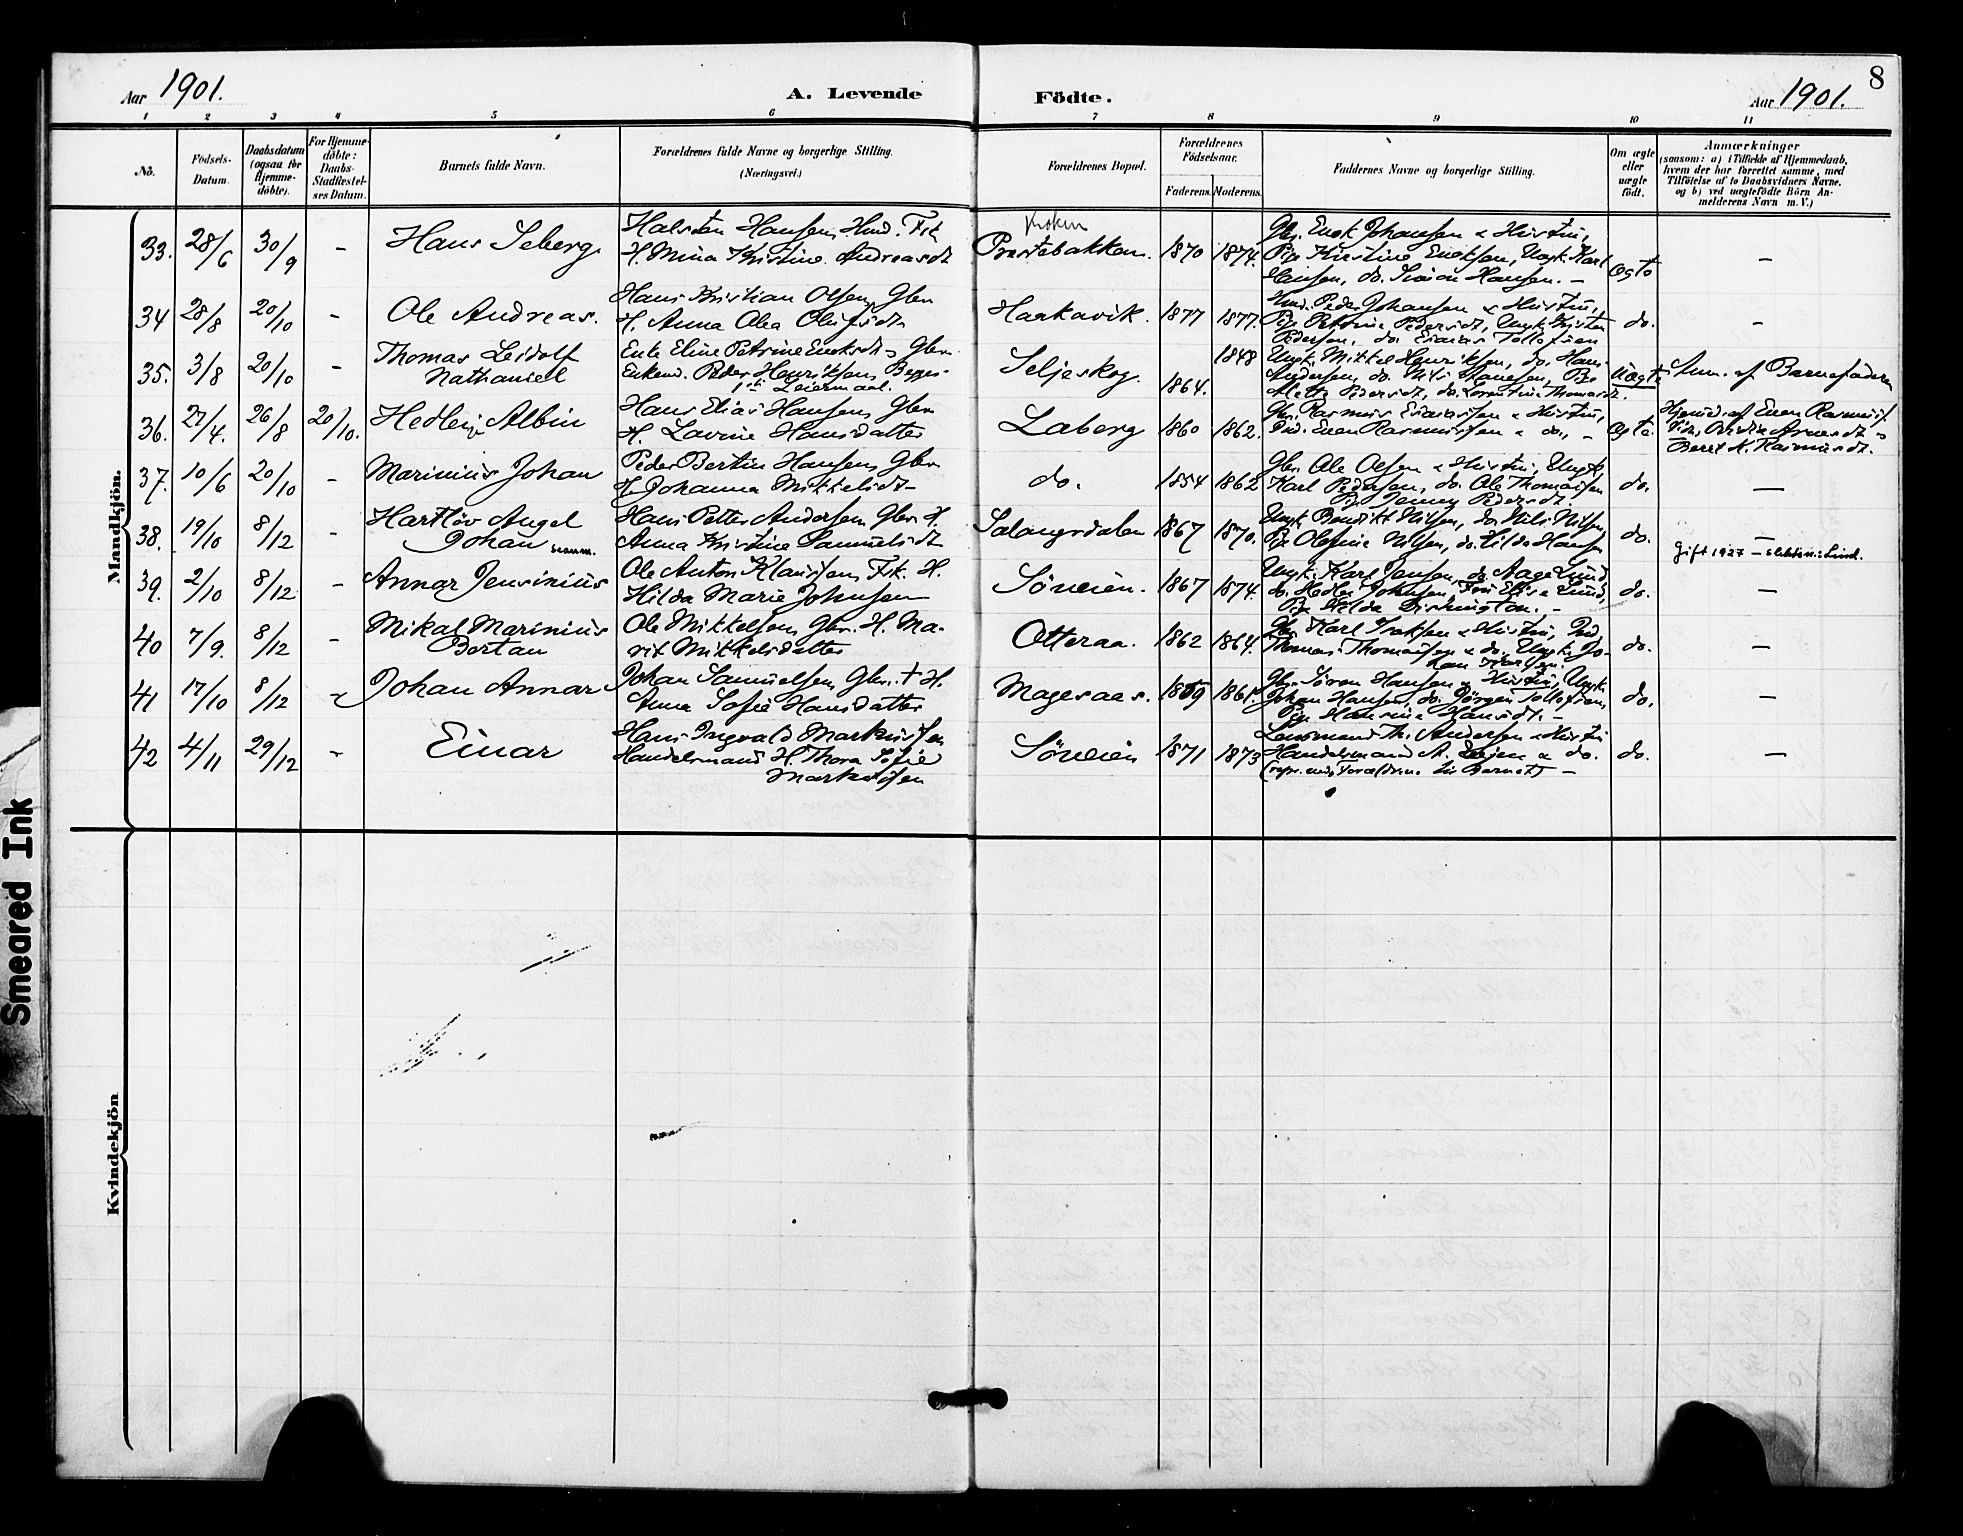 8
Aar 1901. A. Levende Födte. Aar 1901.
1 2 3 4 5 6 7 8 9 10 11
No.
Födsels-Datum.
Daabsdatum (ogsaa for Hjemme-döbte).
For Hjemme-döbte: Daabs-Stadfæstel-ses Datum.
Barnets fulde Navn.
Forældrenes fulde Navne og borgerlige Stilling. (Næringsvei.)
Forældrenes Bopæl.
Forældrenes Födselsaar.
Faderens. Moderens.
Faddernes Navne og borgerlige Stilling.
Om ægte eller uægte födt.
Anmærkninger
(saasom: a) i Tilfælde af Hjemmedaab,
hvem der har forrettet samme, med
Tilföielse af to Daabsvidners Navne.
og b) ved uægtefödte Börn An-
melderens Navn m. V.)
Mandkjön.
33. 28/6 30/9 - Hans Seberg.
Halsten Hansen, Fsk.
H. Mina Kristine Andreasdt
Kroken
Prestebakken. 1870 1874.
Gbr. Enok Johansen & Hustru,
Pige Kristine Enoksen, Ungk. Karl
Hansen, do. Hansen. -
ægte -
34 28/8 20/10 - Ole Andreas.
Hans Kristian Olsen, Gbr.
H. Anna Olea Olufsdt.
Haakavik. 1877 1877.
Peder Johansen & Hustru,
Pige Petrine Pedersdt, Ungk. Kristen
Pedersen, do. Tollefsen
do. -
35. 3/8 20/10 - Thomas Leidolf
Nathaniel
Enke Eline Petrine Enoksdt. Gbr.
Enkem. Peder Henriksen,
1ste Leiermaal.
Seljeskog. 1864. 1848
Ungk. Mikkel Henriksen, do. Hans
Andersen, do. Nils Hansen, Pige
Mette Pedersdt, do. Thomasdt.
Uægte Anm. af Barnefaderen
36. 27/4. 26/8 20/10. Hedley Albin
Hans Elias Hansen, Gbr.
H. Lavine Hansdatter
Laberg 1860 1862.
Gbr. Rasmus & Hustru,
Even Rasmussen & do. -
ægte. Hjemmed. af Even Rasmuss.
Beret K. Rasmusdt.
37. 10/6 20/10 - Marinius Johan
Peder Bertin Hansen, Gbr.
H. Johanna Mikkelsdt.
do. 1854 1862
Gbr. Ole Olsen & Hustru, Ungk.
Karl Pedersen, do. Ole Thomassen
Pige Jenny Pedersdt.
do. —
38. 19/10 8/12 - Hartløv Angel
Johan
Hans Petter Andersen, Gbr. H.
Anna Kristine Samuelsdt
Salangsdalen 1867 1870.
Ungk. Benedikt Nilsen, do. Nils Nilsen,
Pige Olufine Nilsen, do. Hilda Hansen
do. —
Gift 1927 -
39. 2/10 8/12 - Annar Jensinius
Ole Anton Klausen, Fsk. H.
Hilda Marie Johnsen
Söveien. 1867 1874.
Ungk. Karl Jensen, do. Aage Lund,
do. Hedley Johnsen, Frk. Elise Lund,
Pige Hilda Dishington. -
do. —
40 7/9. 8/12 - Mikal Marinius
Bertan
Ole Mikkelsen, Gbr. H. Ma-
rit Mikkelsdatter
Otteraa. 1862 1864.
Gbr. Karl Isaksen & Hustru,
Thomas Thomassen & do. Ungk. Jo-
han
do. —
41 17/10 8/12 - Johan Annar
Johan Samuelsen, Gbr. + H.
Anna Sofie Hansdatter
Mageraas. 1869 1861.
Gbr. Sören Hansen & Hustru, Ungk.
Johan Hansen, do. Jörgen Tollefsen,
Pige Hansine Hansdt. -
do. —
42 4/11 29/12 - Einar
Hans Ingvald Markussen
Handelsmand H. Thora Sofie
Markussen
Söveien 1871 1873
Lensmand Th. Andersen & Hustru
Handelsmand A. & do.
Forældrene Barnet) -
do. —
Kvindekjön
Smeared Ink